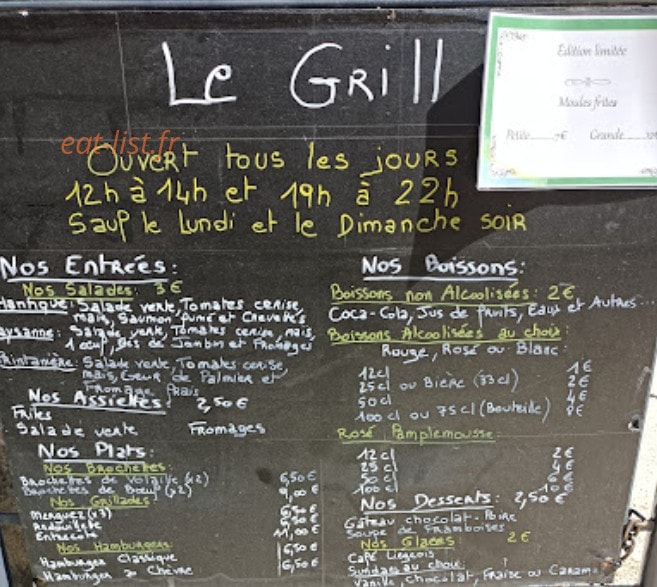 Le Grill
Edition limitée
Moules frites
Petite 7€ Grande
eat-list.fr
Ouvert tous les jours
12h à 14h et 19h à 22h
Sauf le Lundi et le Dimanche soir
Nos Entrées:
Nos Salades: 3€
Salade verte, Tomates cerise,
Maïs, Saumon fumé et Crevettes
Paysanne: Salade verte, Tomates cerise, maïs,
1 œuf, dés de Jambon et Fromages
Printanière: Salade verte, Tomates cerise,
maïs, Cœur de Palmier et
Fromage frais
Nos Assiettes: 2,50€
Frites
Salade verte Fromages
Nos Plats:
Nos Brochettes:
Brochettes de Volaille (x2) 6,50€
Brochettes de Bœuf (x2) 9,00€
Nos Grillades:
Merguez (x3) 6,50€
Andouillette
Entrecôte 11,00€
Nos Hamburgers:
Hamburger Classique 6,50€
Hamburger au Chèvre 6,50€
Nos Boissons:
Boissons non Alcoolisées: 2€
Coca-Cola, Jus de fruits, Eaux et Autres...
Boissons Alcoolisées au choix:
Rouge, Rosé ou Blanc:
12cl 1€
25cl ou Bière (33cl) 2€
50cl 4€
100cl ou 75cl (Bouteille) 8€
Rosé Pamplemousse:
12cl 2€
25cl 4€
50cl 6€
100cl 10€
Nos Desserts: 2,50€
Gâteau chocolat-Poire
Soupe de Framboises
Nos Glaces: 2€
Café Liégeois
Sundaes au choix:
Vanille, Chocolat, Fraise ou Caramel